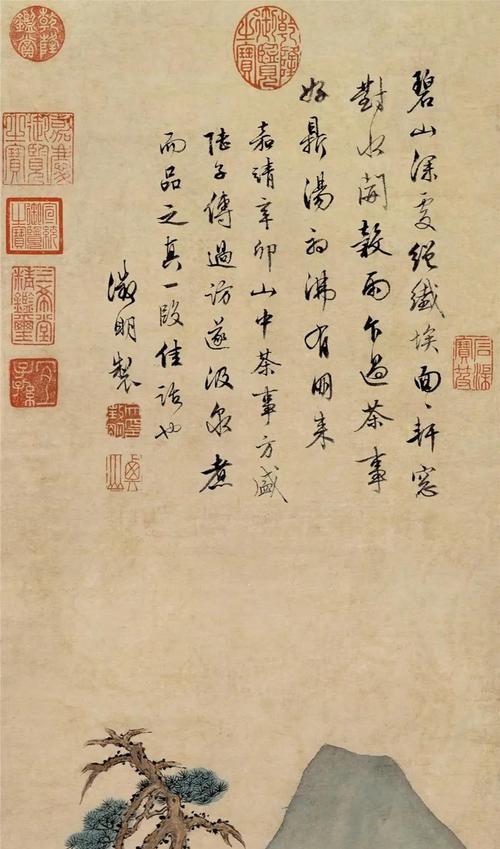 石渠寶笈
碧山深處絕纖埃面々軒窓
對水開穀雨乍過茶事
好鼎湯初沸有朋來
乾隆御覽之寶
嘉靖辛卯山中茶事方盛
陸子傳過訪遂汲泉煮
而品之真一段佳話也
徵明製
乾隆鑑賞
嘉慶御覽之寶
宣統御覽之寶
三希堂精鑑璽
宜子孫